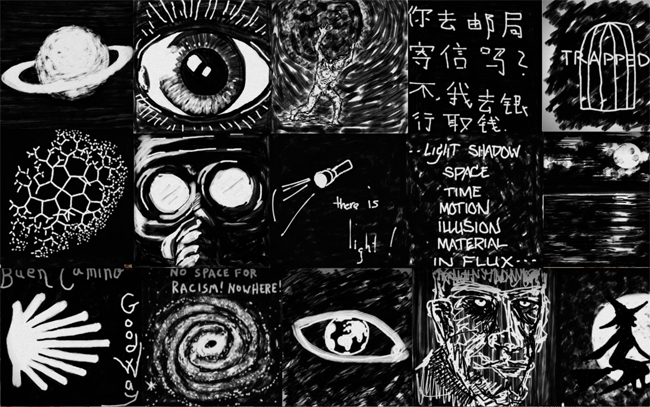 你去邮局
寄信吗?
不,我去银
行取钱.
TRAPPED
there is
light!
..LIGHT SHADOW
SPACE
TIME
MOTION
ILLUSION
MATERIAL
IN FLUX....
Buen Camino
Good Way
NO SPACE FOR
RACISM! NOWHERE!